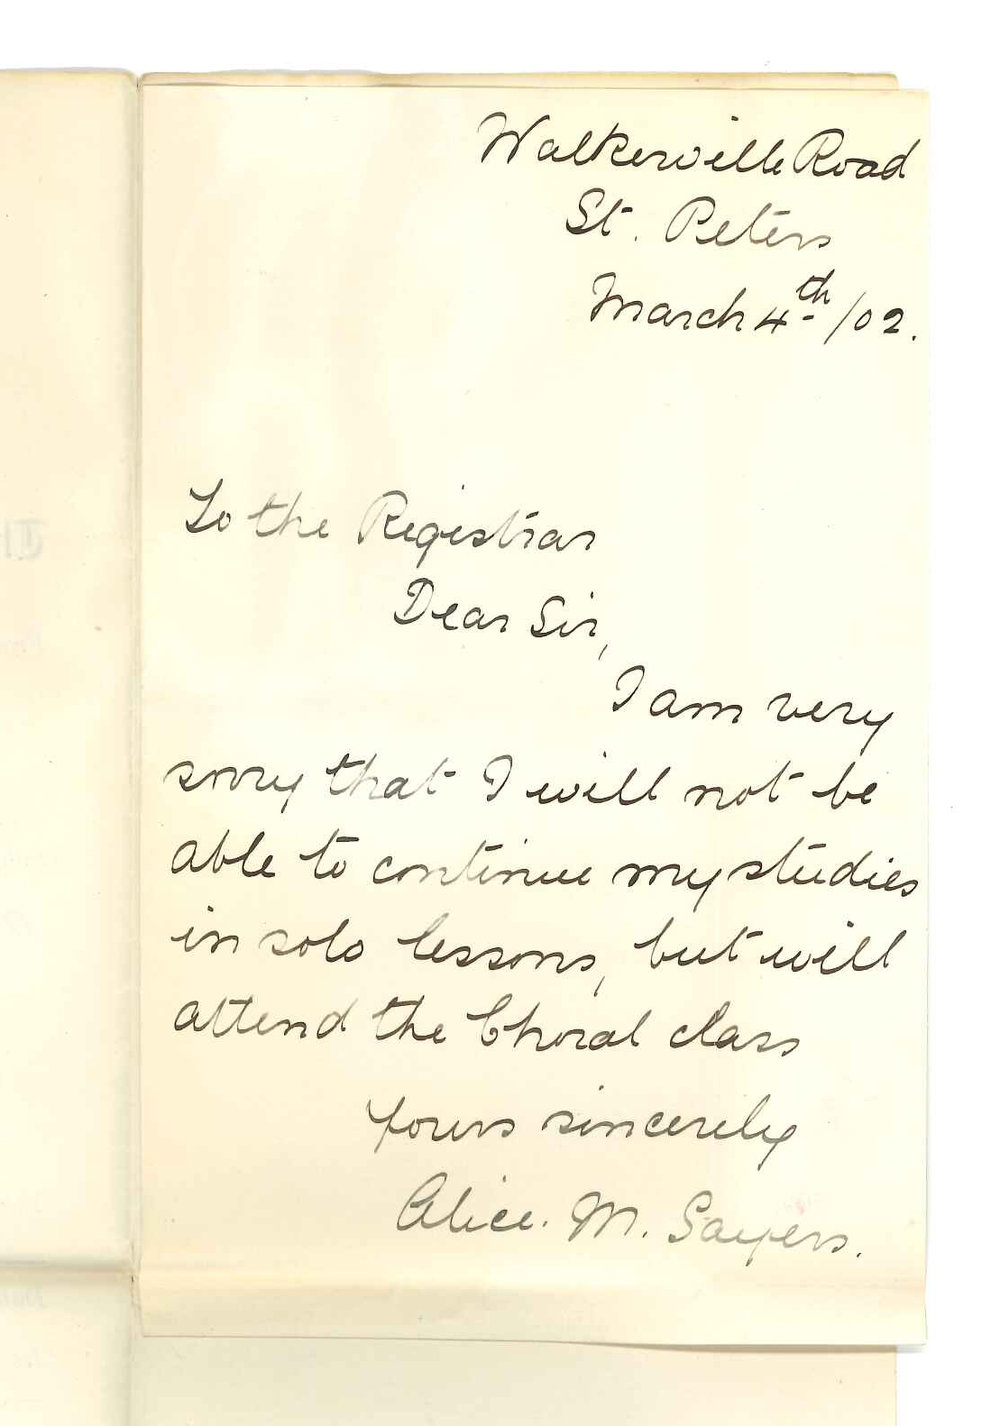 Walkerville Road
St. Peters
March 4th /02.
To the Registrar
Dear Sir,
I am very
sorry that I will not be
able to continue my studies
in solo lessons, but will
attend the Choral class
Yours sincerely
Alice. M. Sayers.